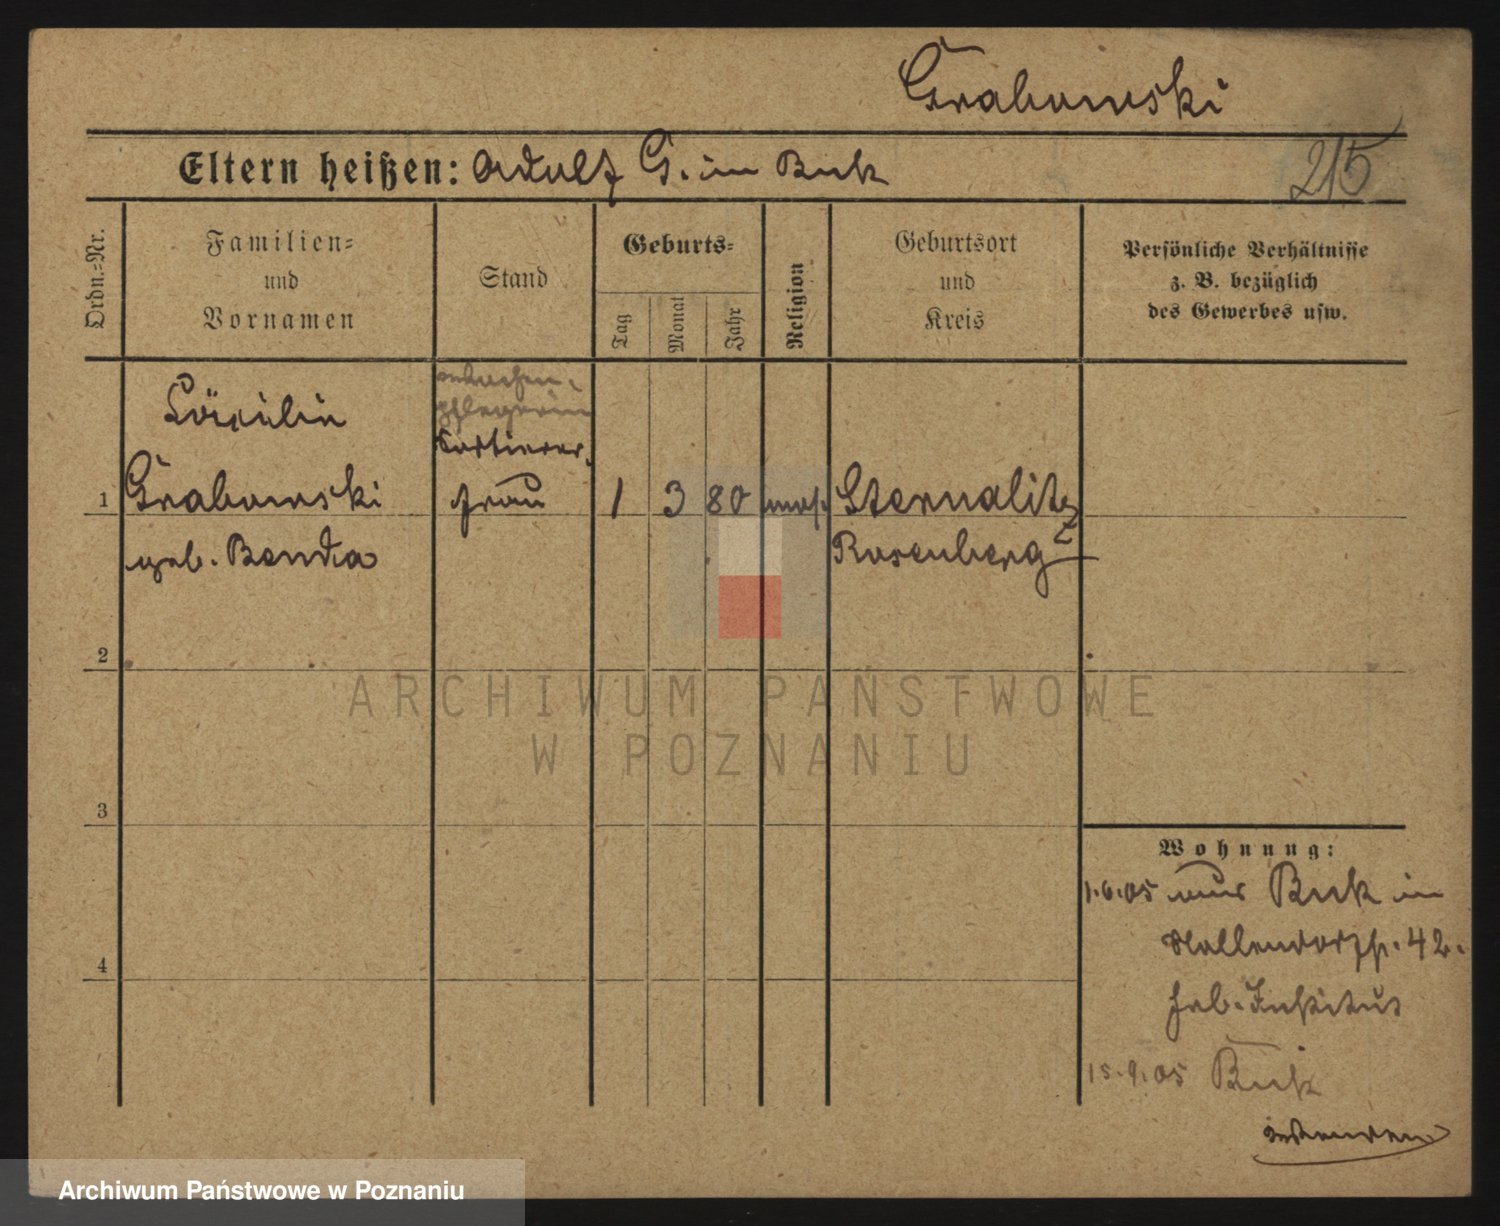 Grabowski
Eltern heißen: Adolf G. in Buk
215
Ordn.=Nr.
Familien=
und
Vornamen
Stand
Geburts=
Tag
Monat
Jahr
Religion
Geburtsort
und
Kreis
Persönliche Verhältnisse
z. B. bezüglich
des Gewerbes usw.
Cäcilie
pflegerin
frau
1 Grabowski 1 3 80 mos. Sternalitz
geb. Benda Rosenberg
2
3
4
ARCHIWUM PAŃSTWOWE
W POZNANIU
Wohnung:
1.6.05 aus Buk in
42.
Heb. Institut
15.9.05 Buk
Archiwum Państwowe w Poznaniu